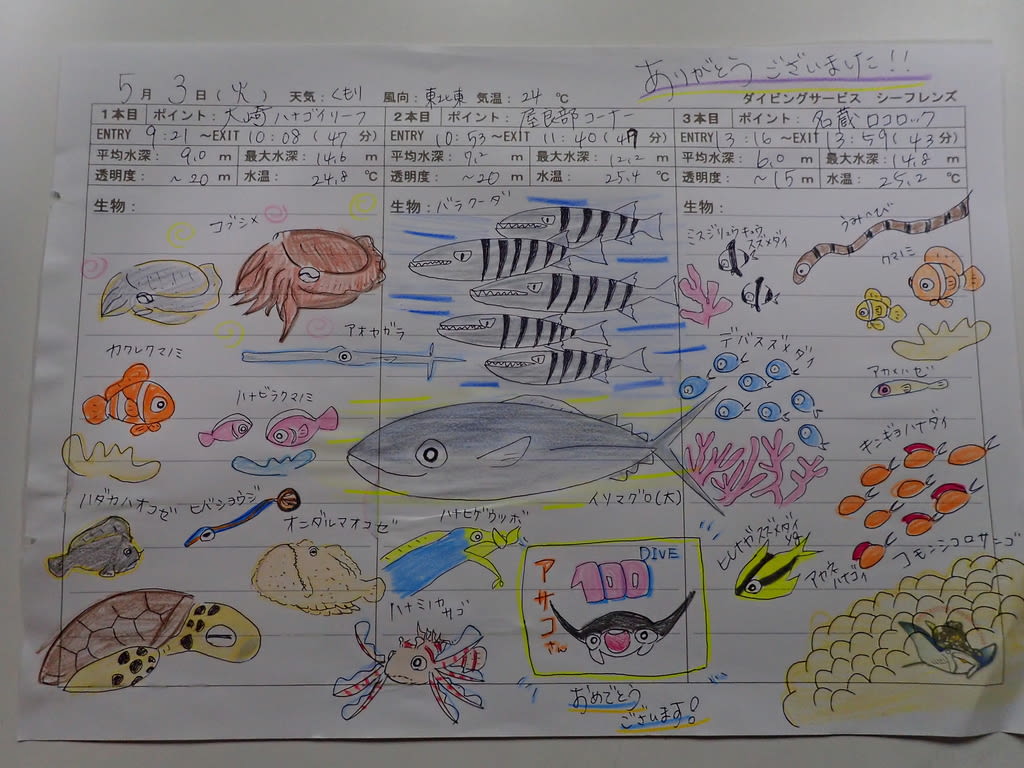 ありがとうございました!!
5月 3日(火) 天気:くもり 風向:東北東 気温:24℃
ダイビングサービス シーフレンズ
1本目 ポイント:大崎ハナゴイリーフ
ENTRY 9:21 ~EXIT 10:08(47分)
平均水深: 9.0 m 最大水深:14.6 m
透明度: ~20 m 水温: 24.8 ℃
生物:
コブシメ
アオヤガラ
カクレクマノミ
ハナビラクマノミ
ハダカハオコゼ
ヒバショウジ
オニダルマオコゼ
2本目 ポイント:屋良部コーナー
ENTRY 10:53~EXIT 11:40(47分)
平均水深: 7.2 m 最大水深: 12.2 m
透明度: ~20 m 水温: 25.4 ℃
生物:バラクーダ
イソマグロ(大)
ハナヒゲウツボ
ハナミノカサゴ
DIVE
100
アサコさん
おめでとう
ございます!
3本目 ポイント: 名蔵ロコロック
ENTRY 13:16~EXIT 13:59(43分)
平均水深: 6.0 m 最大水深: 14.8 m
透明度: ~15 m 水温: 25.2 ℃
生物:
うみへび
ミスジリュウキュウ
スズメダイ
クマノミ
デバスズメダイ
アカメハゼ
キンギョハナダイ
ヒレナガスズメダイ
アカネハナゴイ
コモンシコロサンゴ